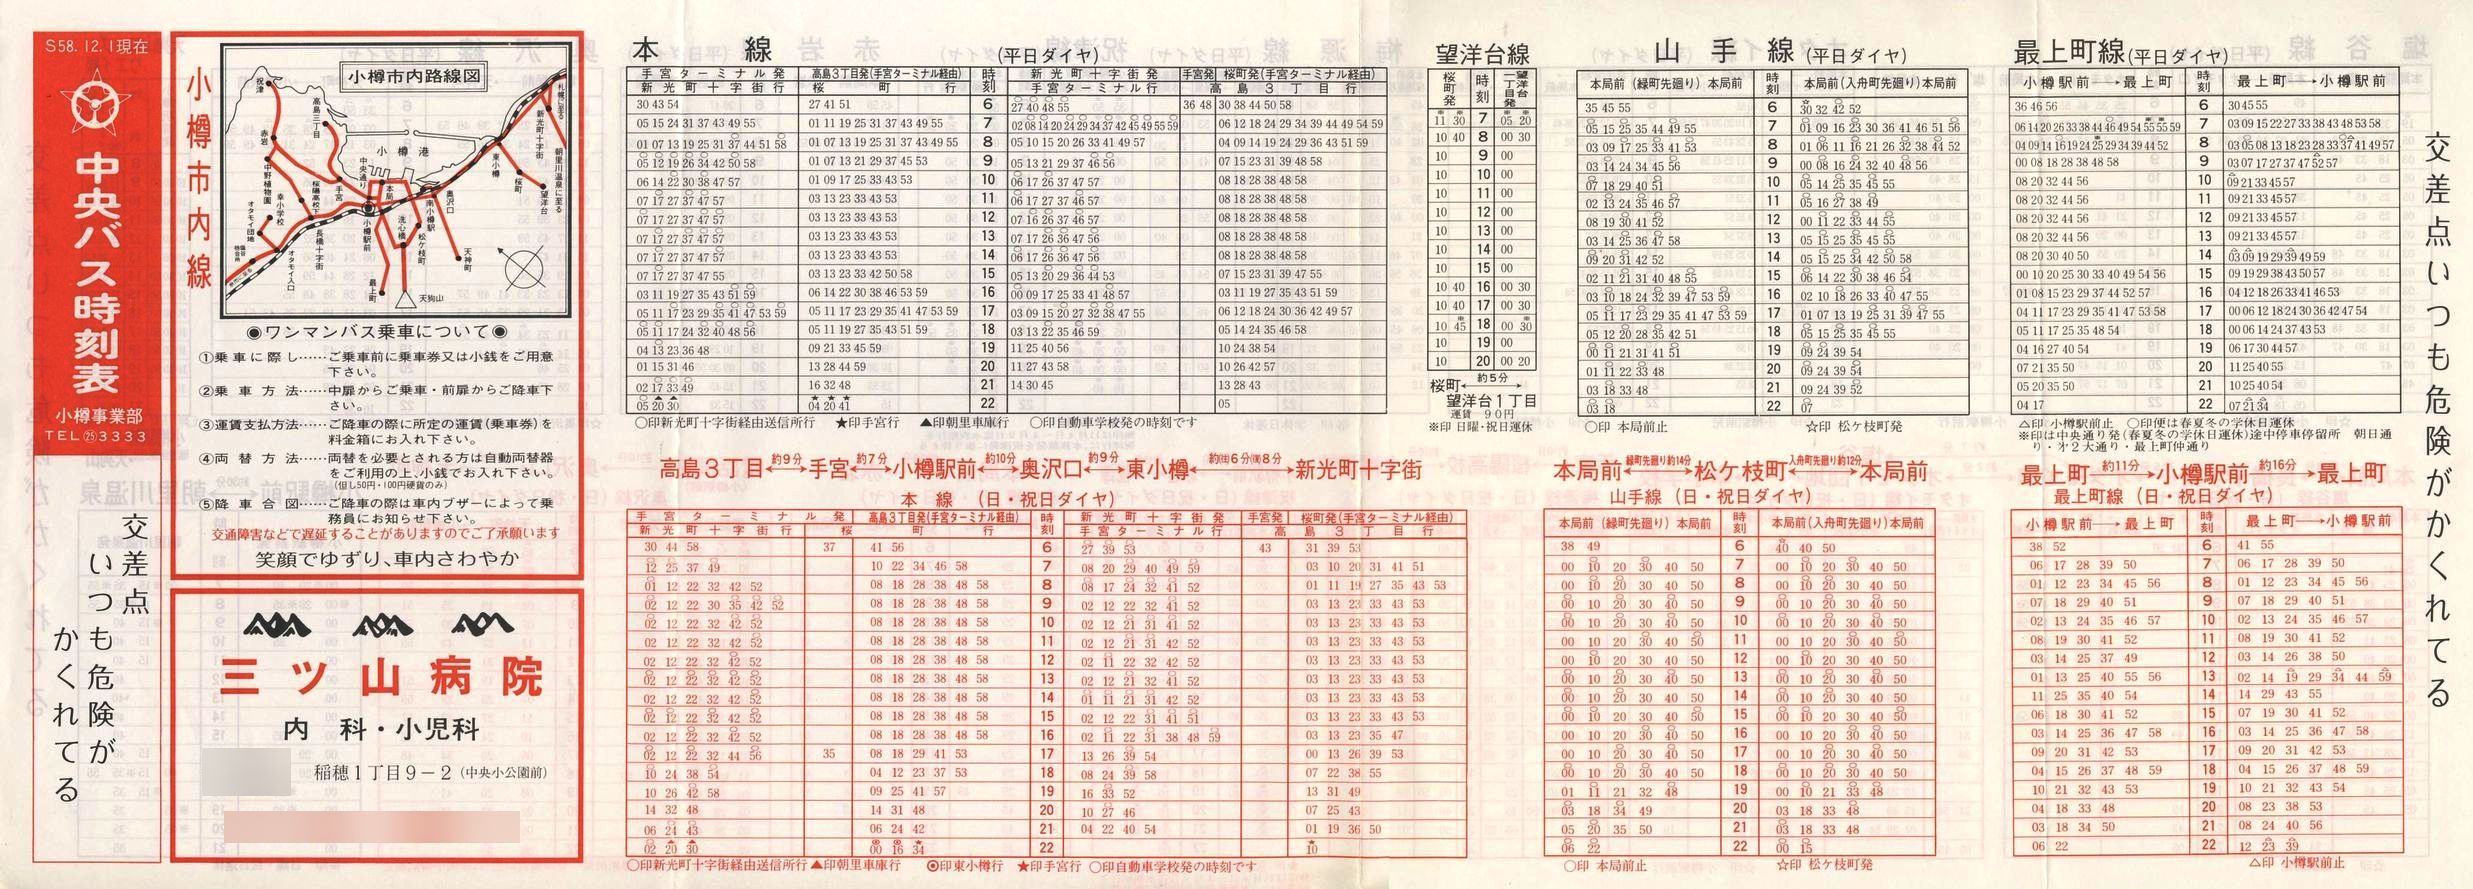 S58.12.1現在
中央バス時刻表
小樽事業部
TEL㉕3333
交差点
いつも危険が
かくれてる
小樽市内線
小樽市内路線図
祝津
高島三丁目
赤岩
中野植物園
手宮
幸小学校
オタモイ団地
長橋十字街
オタモイ入口
小樽港
中央通り
本局前
小樽駅前
洗心橋
南小樽駅
奥沢口
松ケ枝町
天神町
最上町
天狗山
東小樽
桜町
望洋台
新光町十字街
朝里川温泉に至る
札幌に至る
◉ワンマンバス乗車について◉
①乗車に際し……ご乗車前に乗車券又は小銭をご用意
下さい。
②乗車方法……中扉からご乗車・前扉からご降車下
さい。
③運賃支払方法……ご降車の際に所定の運賃(乗車券)を
料金箱にお入れ下さい。
④両替方法……両替を必要とされる方は自動両替器
をご利用の上、小銭でお入れ下さい。
(但し50円・100円硬貨のみ)
⑤降車合図……ご降車の際は車内ブザーによって乗
務員にお知らせ下さい。
交通障害などで遅延することがありますのでご了承願います
笑顔でゆずり、車内さわやか
三ツ山病院
内科・小児科
稲穂1丁目9−2(中央小公園前)
本線 (平日ダイヤ)
手宮ターミナル発 高島3丁目発(手宮ターミナル経由) 時刻 新光町十字街発 手宮発 桜町発(手宮ターミナル経由)
新光町十字街行 桜町行 手宮ターミナル行 高島3丁目行
30 43 54 27 41 51 6 27 40 48 55 36 48 30 38 44 50 58
05 15 24 31 37 43 49 55 01 11 19 25 31 37 43 49 55 7 02 08 14 20 24 29 34 37 42 45 49 55 59 06 12 18 24 29 34 39 44 49 54 59
01 07 13 19 25 31 37 44 51 58 01 07 13 19 25 31 37 43 49 55 8 05 10 15 20 26 33 41 49 57 04 09 14 19 24 29 36 43 51 59
05 12 19 26 34 42 50 58 01 07 13 21 29 37 45 53 9 05 13 21 29 37 46 56 07 15 23 31 39 48 58
06 14 22 30 38 47 57 01 09 17 25 33 43 53 10 06 17 26 37 47 57 08 18 28 38 48 58
07 17 27 37 47 57 03 13 23 33 43 53 11 06 17 27 37 46 57 08 18 28 38 48 58
07 17 27 37 47 57 03 13 23 33 43 53 12 07 16 26 37 46 57 08 18 28 38 48 58
07 17 27 37 47 57 03 13 23 33 43 53 13 07 17 26 36 47 56 08 18 28 38 48 58
07 17 27 37 47 57 03 13 23 33 43 53 14 06 17 26 36 47 56 08 18 28 38 48 58
07 17 27 37 47 55 03 13 23 33 42 50 58 15 05 13 20 29 36 44 53 07 15 23 31 39 47 55
03 11 19 27 35 43 51 59 06 14 22 30 38 46 53 59 16 00 09 17 25 33 41 48 57 03 11 19 27 35 43 51 59
05 11 17 23 29 35 41 47 53 59 05 11 17 23 29 35 41 47 53 59 17 03 09 15 20 27 32 38 47 55 06 12 18 24 30 36 42 49 57
05 11 17 24 32 40 48 56 05 11 19 27 35 43 51 59 18 03 13 22 35 46 59 05 14 24 35 46 58
04 13 23 36 48 09 21 33 45 59 19 11 25 40 56 10 24 38 54
01 15 31 46 13 28 44 59 20 11 27 43 58 10 26 42 57
02 17 33 49 16 32 48 21 14 30 45 13 28 43
05 20 30 04 20 41 22 05
○印新光町十字街経由送信所行 ★印手宮行 ▲印朝里車庫行 ○印自動車学校発の時刻です
高島3丁目 約9分 手宮 約7分 小樽駅前 約10分 奥沢口 約9分 東小樽 約6分8分 新光町十字街
本線 (日・祝日ダイヤ)
手宮ターミナル発 高島3丁目発(手宮ターミナル経由) 時刻 新光町十字街発 手宮発 桜町発(手宮ターミナル経由)
新光町十字街行 桜町行 手宮ターミナル行 高島3丁目行
30 44 58 37 41 56 6 27 39 53 43 31 39 53
12 25 37 49 10 22 34 46 58 7 08 20 29 40 49 59 03 10 20 31 41 51
01 12 22 32 42 52 08 18 28 38 48 58 8 08 17 24 32 41 52 01 11 19 27 35 43 53
02 12 22 30 35 42 52 08 18 28 38 48 58 9 02 12 22 32 41 52 03 13 23 33 43 53
02 12 22 32 42 52 08 18 28 38 48 58 10 02 12 21 31 42 52 03 13 23 33 43 53
02 12 22 32 42 52 08 18 28 38 48 58 11 02 12 21 31 42 52 03 13 23 33 43 53
02 12 22 32 42 52 08 18 28 38 48 58 12 02 11 22 32 42 52 03 13 23 33 43 53
02 12 22 32 42 52 08 18 28 38 48 58 13 02 12 21 32 42 52 03 13 23 33 43 53
02 12 22 32 42 52 08 18 28 38 48 58 14 01 11 21 31 42 52 03 13 23 33 43 53
02 12 22 32 42 52 08 18 28 38 48 58 15 02 12 22 31 41 51 03 13 23 33 43 53
02 12 22 32 42 52 08 18 28 38 48 58 16 02 11 22 31 38 48 59 03 13 23 35 47
02 12 22 32 44 56 35 08 18 29 41 53 17 13 26 39 54 00 13 26 39 53
10 24 38 54 04 12 23 37 53 18 08 24 39 58 07 22 38 55
10 26 42 58 09 25 41 57 19 16 33 52 13 31 49
14 32 48 14 31 48 20 10 27 46 07 25 43
06 24 43 06 24 42 21 04 22 40 54 01 19 36 50
02 20 30 00 16 34 22 10
○印新光町十字街経由送信所行 ▲印朝里車庫行 ◉印東小樽行 ★印手宮行 ○印自動車学校発の時刻です
望洋台線
桜町発 時刻 望洋台一丁目発
11 30 7 05 20
10 40 8 00 30
10 9 00
10 10 00
10 11 00
10 12 00
10 13 00
10 14 00
10 15 00
10 40 16 00 30
10 40 17 00 30
10 45 18 00 30
10 19 00
10 20 00 20
桜町 約5分 望洋台1丁目
運賃 90円
※印 日曜・祝日運休
山手線 (平日ダイヤ)
本局前(緑町先廻り)本局前 時刻 本局前(入舟町先廻り)本局前
35 45 55 6 30 32 42 52
05 15 25 35 44 49 55 7 01 09 16 23 30 36 41 46 51 56
03 09 17 25 33 41 53 8 01 06 11 16 21 26 32 38 44 52
03 14 24 34 45 56 9 00 08 16 24 32 40 48 56
07 18 29 40 51 10 05 14 25 35 45 55
02 13 24 35 46 57 11 05 16 27 38 49
08 19 30 41 52 12 00 11 22 33 44 55
03 14 25 36 47 58 13 05 15 25 35 45 55
09 20 31 42 52 14 05 15 25 34 42 50 58
02 11 21 31 40 48 55 15 06 14 22 30 38 46 54
03 10 18 24 32 39 47 53 59 16 02 10 18 26 33 40 47 55
05 11 17 23 29 35 41 47 53 59 17 01 07 13 19 25 31 39 47 55
05 12 20 28 35 42 51 18 05 15 25 35 45 55
00 11 21 31 41 51 19 09 24 39 54
01 11 22 33 48 20 09 24 39 54
03 18 33 48 21 09 24 39 52
03 18 22 07
○印 本局前止 ☆印 松ケ枝町発
本局前 緑町先廻り約14分 松ケ枝町 入舟町先廻り約12分 本局前
山手線(日・祝日ダイヤ)
本局前(緑町先廻り)本局前 時刻 本局前(入舟町先廻り)本局前
38 49 6 40 40 50
00 10 20 30 40 50 7 00 10 20 30 40 50
00 10 20 30 40 50 8 00 10 20 30 40 50
00 10 20 30 40 50 9 00 10 20 30 40 50
00 10 20 30 40 50 10 00 10 20 30 40 50
00 10 20 30 40 50 11 00 10 20 30 40 50
00 10 20 30 40 50 12 00 10 20 30 40 50
00 10 20 30 40 50 13 00 10 20 30 40 50
00 10 20 30 40 50 14 00 10 20 30 40 50
00 10 20 30 40 50 15 00 10 20 30 40 50
00 10 20 30 40 50 16 00 10 20 30 40 50
00 10 20 30 40 50 17 00 10 20 30 40 50
00 10 20 30 40 50 18 00 10 20 30 40 50
01 11 21 32 48 19 00 10 21 33 48
03 18 34 49 20 03 18 33 48
05 20 35 50 21 03 18 33 48
06 22 22 00 15
○印 本局前止 ☆印 松ケ枝町発
最上町線(平日ダイヤ)
小樽駅前→最上町 時刻 最上町→小樽駅前
36 46 56 6 30 45 55
06 14 20 26 33 38 44 46 49 54 55 55 59 7 03 09 15 22 27 33 38 43 48 53 58
04 09 14 16 19 24 25 29 34 39 44 52 8 03 05 08 13 18 23 28 33 37 41 49 57
00 08 18 28 38 48 58 9 03 07 17 27 37 47 52 57
08 20 32 44 56 10 09 21 33 45 57
08 20 32 44 56 11 09 21 33 45 57
08 20 32 44 56 12 09 21 33 45 57
08 20 32 44 56 13 09 21 33 45 57
08 20 30 40 50 14 03 09 19 29 39 49 59
00 10 20 25 30 33 40 49 54 56 15 09 19 29 38 43 50 57
01 08 15 23 29 37 44 52 57 16 04 12 18 26 33 41 46 53
04 11 17 23 29 35 41 47 53 58 17 00 06 12 18 24 30 36 42 47 54
05 11 17 25 35 48 54 18 00 06 14 24 37 43 53
04 16 27 40 54 19 06 17 30 44 57
07 21 35 50 20 11 25 40 55
05 20 35 50 21 10 25 40 54
04 17 22 07 21 34
△印 小樽駅前止 ○印便は春夏冬の学休日運休
※印は中央通り発(春夏冬の学休日運休)途中停車停留所 朝日通
り・オ2大通り・最上町仲通り
最上町 約11分 小樽駅前 約16分 最上町
最上町線(日・祝日ダイヤ)
小樽駅前→最上町 時刻 最上町→小樽駅前
38 52 6 41 55
06 17 28 39 50 7 06 17 28 39 50
01 12 23 34 45 56 8 01 12 23 34 45 56
07 18 29 40 51 9 07 18 29 40 51
02 13 24 35 46 57 10 02 13 24 35 46 57
08 19 30 41 52 11 08 19 30 41 52
03 14 25 37 49 12 03 14 26 38 50
01 13 25 40 55 56 13 02 14 19 29 34 44 59
11 25 35 40 54 14 14 29 43 55
06 18 30 41 52 15 07 19 30 41 52
03 14 25 36 47 58 16 03 14 25 36 47 58
09 20 31 42 53 17 09 20 31 42 53
04 15 26 37 48 59 18 04 15 26 37 48 59
10 21 32 43 53 19 10 21 32 43 54
04 18 33 48 20 08 23 38 53
03 18 34 50 21 08 24 40 56
06 22 22 12 23 39
△印 小樽駅前止
交差点いつも危険がかくれてる